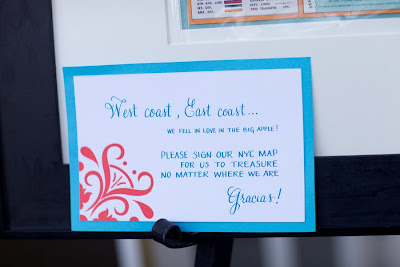 West coast, East coast...
WE FELL IN LOVE IN THE BIG APPLE!
PLEASE SIGN OUR NYC MAP
FOR US TO TREASURE
NO MATTER WHERE WE ARE
Gracias!